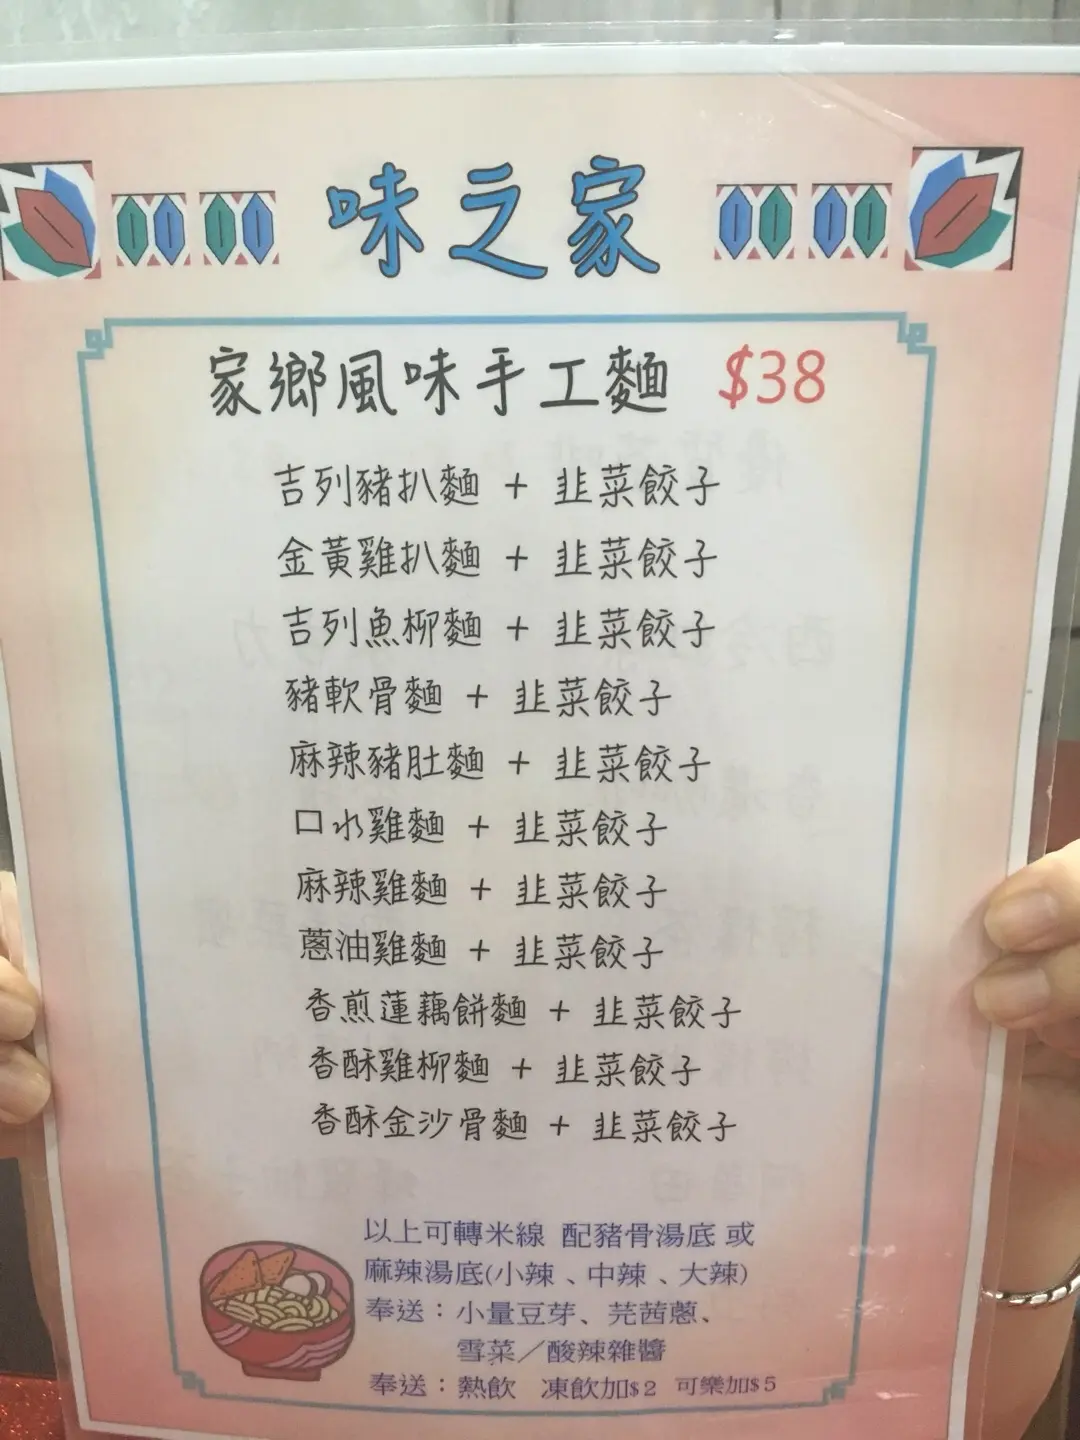 味之家
家鄉風味手工麵 $38
吉列豬扒麵 + 韭菜餃子
金黃雞扒麵 + 韭菜餃子
吉列魚柳麵 + 韭菜餃子
豬軟骨麵 + 韭菜餃子
麻辣豬肚麵 + 韭菜餃子
口水雞麵 + 韭菜餃子
麻辣雞麵 + 韭菜餃子
蔥油雞麵 + 韭菜餃子
香煎蓮藕餅麵 + 韭菜餃子
香酥雞柳麵 + 韭菜餃子
香酥金沙骨麵 + 韭菜餃子
以上可轉米線 配豬骨湯底 或
麻辣湯底(小辣、中辣、大辣)
奉送：小量豆芽、芫茜蔥、
雪菜／酸辣雜醬
奉送：熱飲 凍飲加$2 可樂加$5